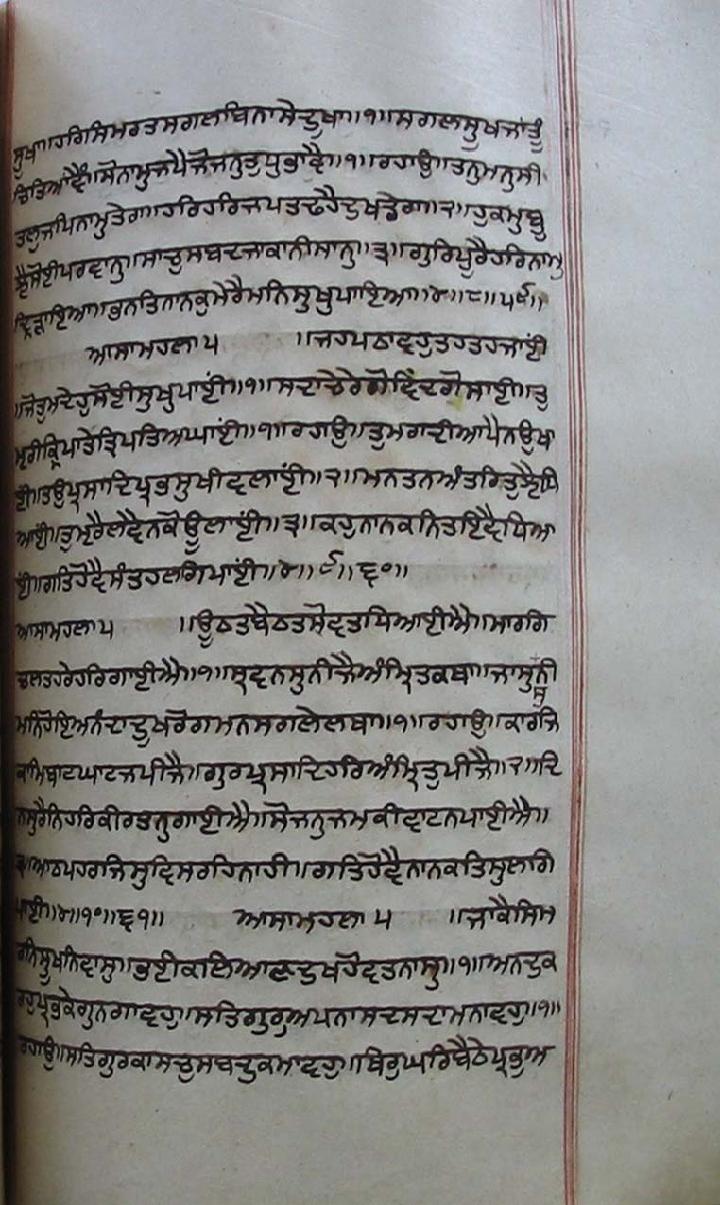 ਸੁਖਾ॥ਹਰਿਸਿਮਰਤਸਗਲਬਿਨਾਸੇਦੁਖਾ॥੧॥ਸਗਲਸੂਖਜਾਂਤੂੰ
ਚਿਤਿਆਵੈਂ॥ਸੋਨਾਮੁਜਪੈਜੋਜਨੁਤੁਧੁਭਾਵੈ॥੧॥ਰਹਾਉ॥ਤਨੁਮਨੁਸੀ
ਤਲੁਜਪਿਨਾਮੁਤੇਰਾ॥ਹਰਿਹਰਿਜਪਤਢਹੈਦੁਖਡੇਰਾ॥੨॥ਹੁਕਮੁਬੂ
ਝੈਸੋਈਪਰਵਾਨੁ॥ਸਾਚੁਸਬਦਜਾਕਾਨੀਸਾਨੁ॥੩॥ਗੁਰਿਪੂਰੈਹਰਿਨਾਮੁ
ਦ੍ਰਿੜਾਇਆ॥ਭਨਤਿਨਾਨਕੁਮੇਰੈਮਨਿਸੁਖੁਪਾਇਆ॥੪॥੮॥੫੯॥
ਆਸਾਮਹਲਾ੫ ॥ਜਹਪਠਾਵਹੁਤਹਤਹਜਾਈਂ
॥ਜੋਤੁਮਦੇਹੁਸੋਈਸੁਖੁਪਾਈਂ॥੧॥ਸਦਾਚੇਰੇਗੋਵਿੰਦਗੋਸਾਈ॥ਤੁ
ਮ੍ਹਰੀਕ੍ਰਿਪਾਤੇਤ੍ਰਿਪਤਿਅਘਾਈਂ॥੧॥ਰਹਾਉ॥ਤੁਮਰਾਦੀਆਪੈਨਉਖਾ
ਈਂ॥ਤਉਪ੍ਰਸਾਦਿਪ੍ਰਭਸੁਖੀਵਲਾਈਂ॥੨॥ਮਨਤਨਅੰਤਰਿਤੁਝੈਧਿ
ਆਈਂ॥ਤੁਮ੍ਹਰੈਲਵੈਨਕੋਊਲਾਈਂ॥੩॥ਕਹੁਨਾਨਕਨਿਤਇਵੈਧਿਆ
ਈਂ॥ਗਤਿਹੋਵੈਸੰਤਹਲਗਿਪਾਈਂ॥੪॥੯॥੬੦॥
ਆਸਾਮਹਲਾ੫ ॥ਊਠਤਬੈਠਤਸੋਵਤਧਿਆਈਐ॥ਮਾਰਗਿ
ਚਲਤਹਰੇਹਰਿਗਾਈਐ॥੧॥ਸ੍ਰਵਨਸੁਨੀਜੈਅੰਮ੍ਰਿਤਕਥਾ॥ਜਾਸੁਨ੍ਹੀ
ਮਨਿਹੋਇਅਨੰਦਾਦੂਖਰੋਗਮਨਸਗਲੇਲਥਾ॥੧॥ਰਹਾਉ॥ਕਾਰਜਿ
ਕਾਮਿਬਾਟਘਾਟਜਪੀਜੈ॥ਗੁਰਪ੍ਰਸਾਦਿਹਰਿਅੰਮ੍ਰਿਤੁਪੀਜੈ॥੨॥ਦਿ
ਨਸੁਰੈਨਿਹਰਿਕੀਰਤਨੁਗਾਈਐ॥ਸੋਜਨੁਜਮਕੀਵਾਟਨਪਾਈਐ॥
੩॥ਆਠਪਹਰਜਿਸੁਵਿਸਰਹਿਨਾਹੀ॥ਗਤਿਹੋਵੈਨਾਨਕਤਿਸੁਲਗਿ
ਪਾਈ॥੪॥੧੦॥੬੧॥ ਆਸਾਮਹਲਾ੫ ॥ਜਾਕੈਸਿਮ
ਰਨਿਸੂਖਨਿਵਾਸੁ॥ਭਈਕਲਿਆਣਦੁਖਹੋਵਤਨਾਸੁ॥੧॥ਅਨਦੁਕ
ਰਹੁਪ੍ਰਭਕੇਗੁਨਗਾਵਹੁ॥ਸਤਿਗੁਰੁਅਪਨਾਸਦਸਦਾਮਨਾਵਹੁ॥੧॥
ਰਹਾਉ॥ਸਤਿਗੁਰਕਾਸਚੁਸਬਦੁਕਮਾਵਹੁ॥ਥਿਰੁਘਰਿਬੈਠੇਪ੍ਰਭੁਅ